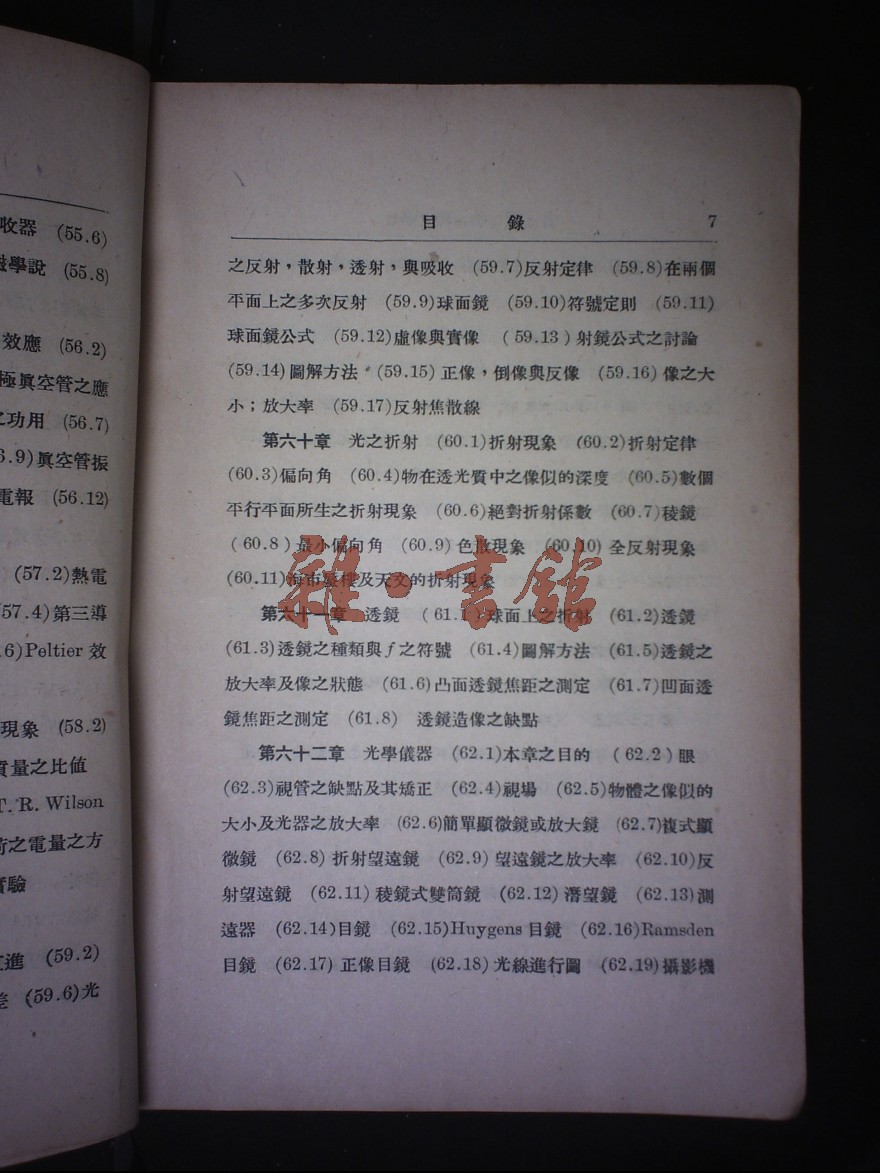 收器 (55.6)
學說 (55.8)
效應 (56.2)
極眞空管之應
功用 (56.7)
6.9)眞空管振
電報 (56.12)
(57.2)熱電
57.4)第三導
6)Peltier 效
現象 (58.2)
質量之比値
T. R. Wilson
荷之電量之方
實驗
進 (59.2)
差 (59.6)光
目 錄 7
之反射,散射,透射,與吸收 (59.7)反射定律 (59.8)在兩個
平面上之多次反射 (59.9)球面鏡 (59.10)符號定則 (59.11)
球面鏡公式 (59.12)虛像與實像 (59.13)射鏡公式之討論
(59.14)圖解方法 (59.15)正像,倒像與反像 (59.16)像之大
小;放大率 (59.17)反射焦散線
第六十章 光之折射 (60.1)折射現象 (60.2)折射定律
(60.3)偏向角 (60.4)物在透光質中之像似的深度 (60.5)數個
平行平面所生之折射現象 (60.6)絕對折射係數 (60.7)稜鏡
(60.8)最小偏向角 (60.9)色散現象 (60.10)全反射現象
(60.11)海市蜃樓及天文的折射現象
第六十一章 透鏡 (61.1)球面上之折射 (61.2)透鏡
(61.3)透鏡之種類與f之符號 (61.4)圖解方法 (61.5)透鏡之
放大率及像之狀態 (61.6)凸面透鏡焦距之測定 (61.7)凹面透
鏡焦距之測定 (61.8) 透鏡造像之缺點
第六十二章 光學儀器 (62.1)本章之目的 (62.2)眼
(62.3)視管之缺點及其矯正 (62.4)視場 (62.5)物體之像似的
大小及光器之放大率 (62.6)簡單顯微鏡或放大鏡 (62.7)複式顯
微鏡 (62.8)折射望遠鏡 (62.9)望遠鏡之放大率 (62.10)反
射望遠鏡 (62.11)稜鏡式雙筒鏡 (62.12)潛望鏡 (62.13)測
遠器 (62.14)目鏡 (62.15)Huygens 目鏡 (62.16)Ramsden
目鏡 (62.17)正像目鏡 (62.18)光線進行圖 (62.19)攝影機
雜·書館